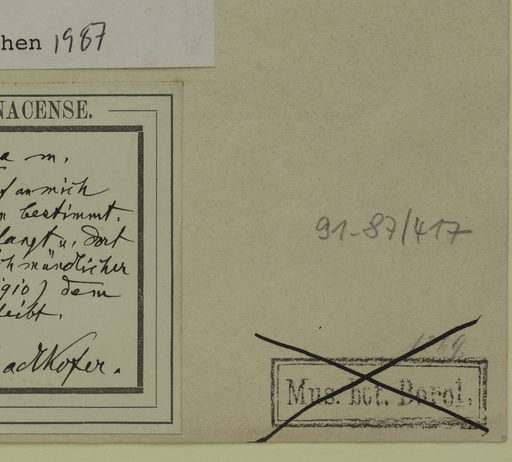 hen 1987
NACENSE.
a m.
f an mich
n bestimmt.
langt u. dort
ch mündlicher
igio) dem
leibt.
adlkofer.
91-87/417
Mus. bot. Berol.